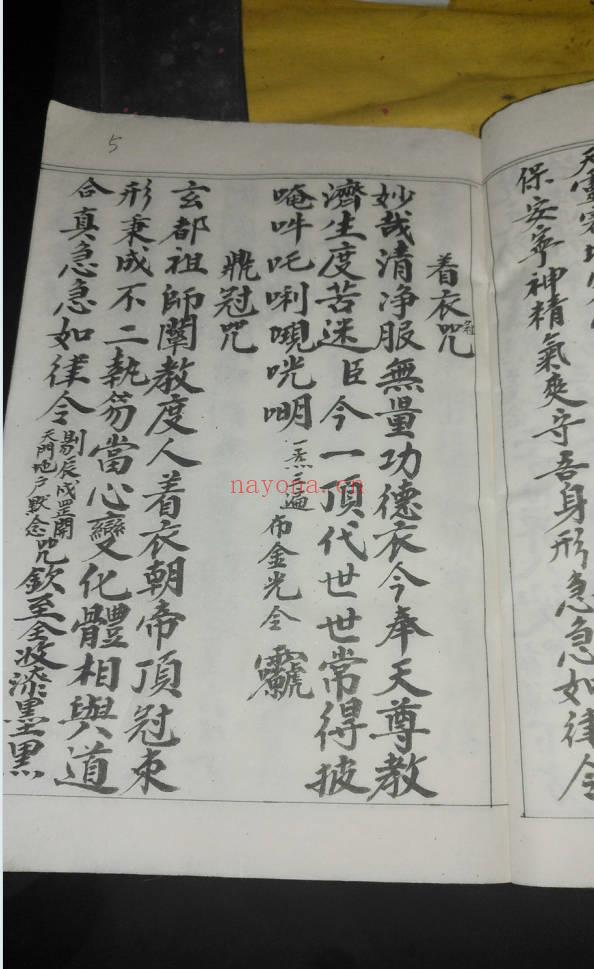 保安寧神精氣爽守吾身形急急如律令
着衣咒
妙哉清净服無量功德衣今奉天尊教
濟生度苦迷臣今一頂代世世常得披
唵吽吒唎 咣 一炁三遍 布金光令
鼎冠咒
玄都祖師闡教度人着衣朝帝頂冠束
形秉成不二執笏當心變化體相與道
合真急急如律令 剔辰戌罡開
天門地户默念咒 欽至 漆墨黑
5
nayona.cn